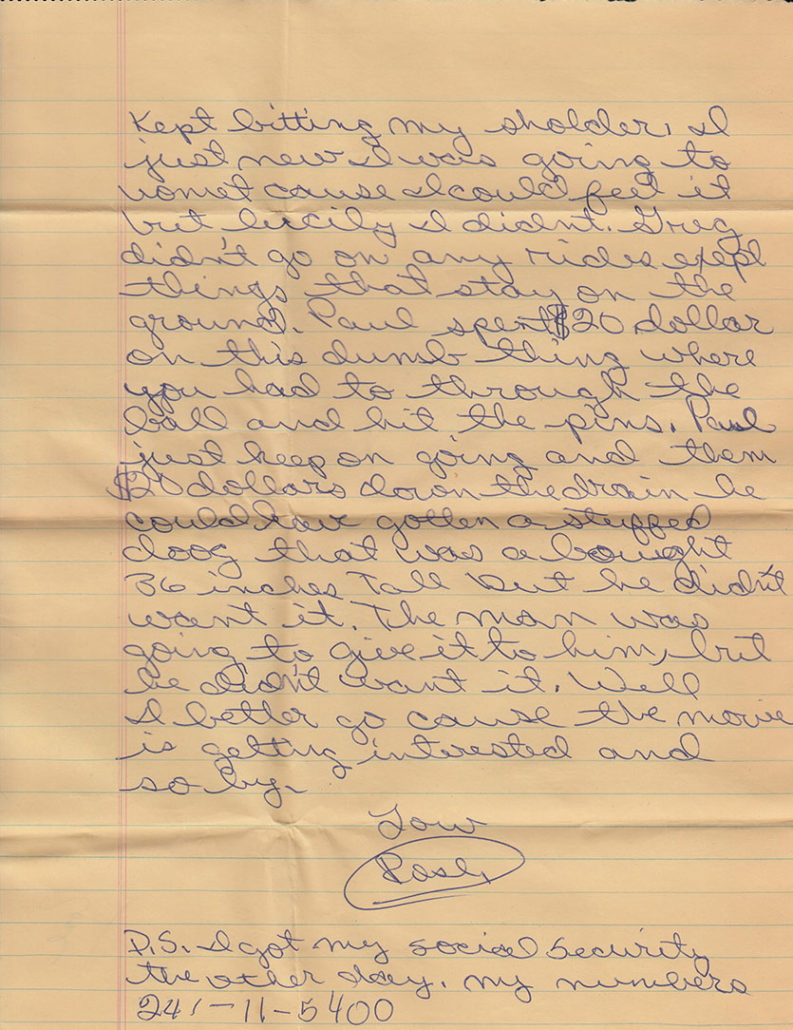 Kept bitting my sholder, I
just new I was going to
vomet cause I could feel it
but lucily I didnt. Greg
didn't go on any rides exepl
things that stay on the
ground. Paul spent $20 dollar
on this dumb thing where
you had to through the
ball and hit the pins. Paul
just keep on going and them
$20 dollars down the drain he
could have gotten a stuffed
doog that was a bought
36 inches Tall but he didn't
want it. The man was
going to give it to him, but
he didn't want it. Well
I better go cause the movie
is getting interested and
so by.
Love
P.S. I got my social security
the other day. my numbers
241-11-5400